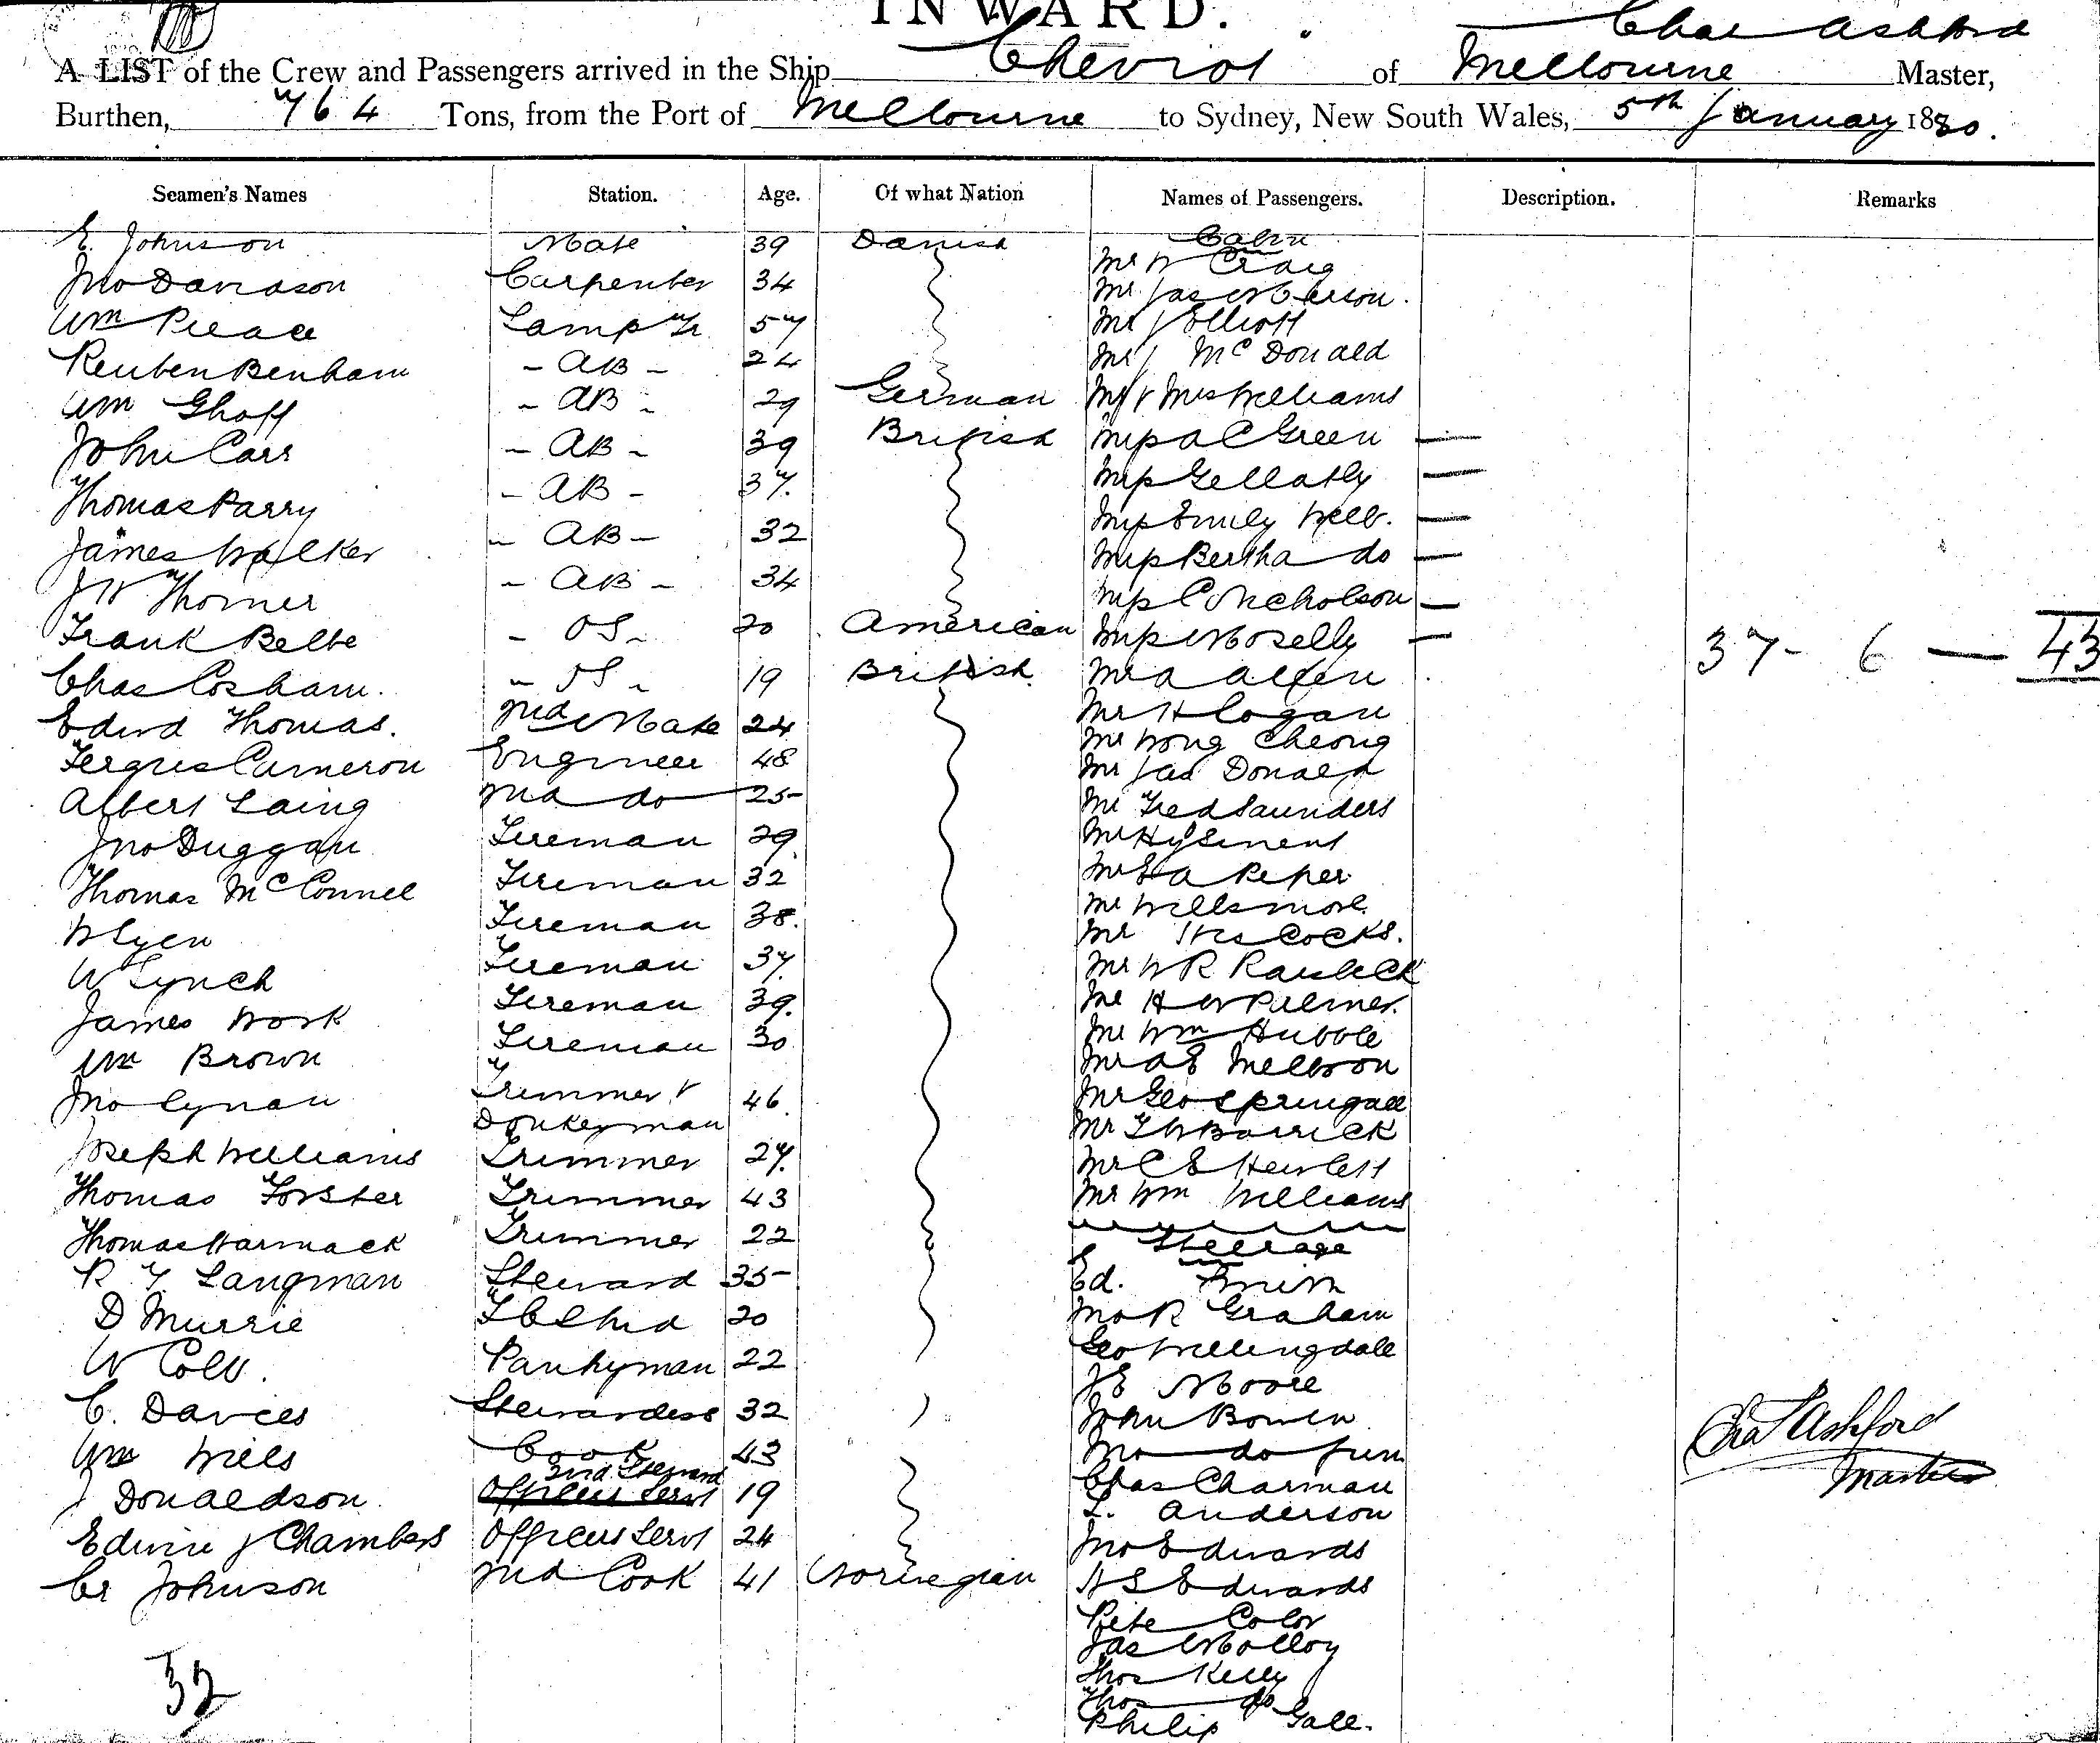 INWARD.
Chas Ashford
A LIST of the Crew and Passengers arrived in the Ship Cheviot of Melbourne Master,
Burthen, 764 Tons, from the Port of Melbourne to Sydney, New South Wales, 5th January 1880.
Seamen's Names Station. Age. Of what Nation Names of Passengers. Description. Remarks
E. Johnson Mate 39 Danish Cabin
Mr W Craig
Jno Davidson Carpenter 34 Mr Jas
Wm Pearce Lamp Tr. 57 Mr J Elliott
Reuben Benham - AB - 24 Mr J McDonald
Wm Ghoff - AB - 29 German Mr & Mrs Williams
John Carr - AB - 39 British Miss A C Green —
Thomas Parry - AB - 37. Miss Gellatly —
James Walker - AB - 32 Miss Emily Webb. —
Miss Bertha do —
J W Thorner - AB - 34 Miss C Nicholson —
Frank Belbe - OS - 20 American Miss Moselly —
37 - 6 — 43
Chas Cosham. - OS - 19 British. Mr A Allen
Edwd Thomas. 2nd Mate 24 Mr H Logan
Mr Wong Cheong
Fergus Cameron Engineer 48 Mr Jas Donald
Albert Laing 2nd do 25 Mr Fred Saunders
Jno Duggan Fireman 29 Mr Hy
Thomas McConnel Fireman 32 Mr Peper
Fireman 38. Mr Willsmore.
Mr Hiscocks.
W Lynch Fireman 37. Mr W R Raisbeck
James Work Fireman 39. Mr H W Palmer.
Wm Brown Fireman 30 Mr Wm Hubble
Mr A E Mellson
Jno Lynau Trimmer & Donkeyman 46 Mr Geo Springall
Mr Barrick
Joseph Williams Trimmer 27. Mr C E Hewlett
Thomas Forster Trimmer 43 Mr Wm Williams
Thomas Warmack Trimmer 22 Steerage
R Y Langman Steward 35 Ed.
D Murrie 20 Jno R Graham
W Coll. Pantryman 22 Geo Willingdale
J E Moore
C. Davies Stewardess 32 John Bowen
Chas Ashford
Wm Wills Cook 43 do Junr
Master
2nd Steward
J Donaldson Officers Servt 19 Chas Charman
L. Anderson
Edwin J Chambers Officers Servt 24 Jno Edwards
Cr Johnson 2nd Cook 41 Norwegian H S Edwards
Pete Color
Jas Molloy
Thos Kelly
32
Thos do
Philip Gall.